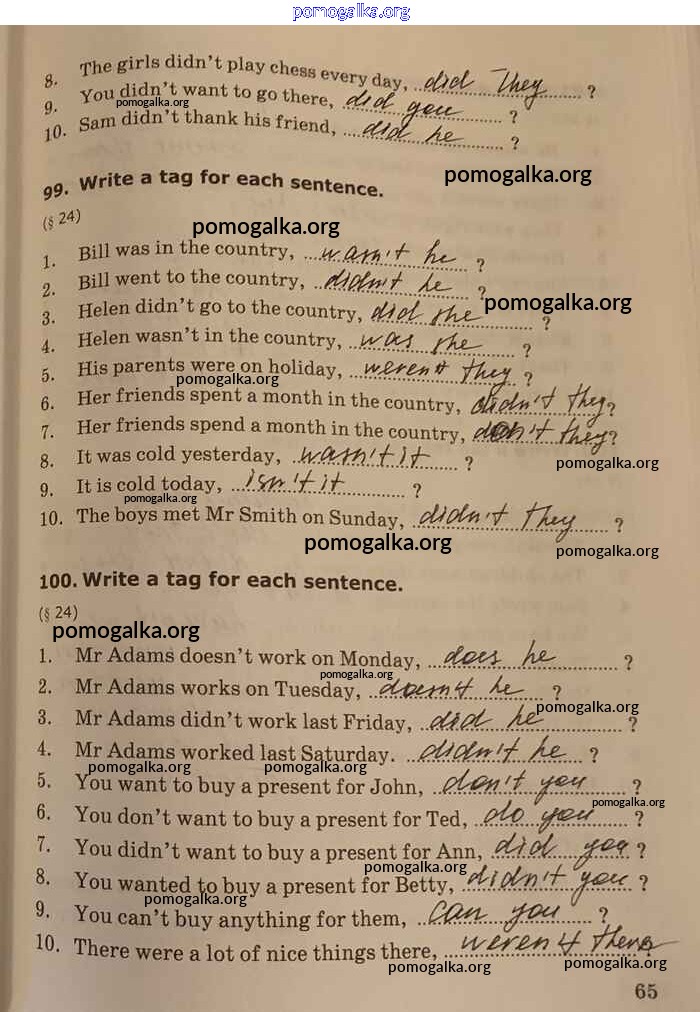 pomogalka.org
8. The girls didn't play chess every day, did They ?
9. You didn't want to go there, did you ?
pomogalka.org
10. Sam didn't thank his friend, did he ?
99. Write a tag for each sentence.
pomogalka.org
(§ 24)
pomogalka.org
1. Bill was in the country, wasn't he ?
2. Bill went to the country, didn't he ?
3. Helen didn't go to the country, did she ?
pomogalka.org
4. Helen wasn't in the country, was she ?
5. His parents were on holiday, weren't they ?
pomogalka.org
6. Her friends spent a month in the country, didn't they ?
7. Her friends spend a month in the country, don't they ?
8. It was cold yesterday, wasn't it ?
pomogalka.org
9. It is cold today, isn't it ?
pomogalka.org
10. The boys met Mr Smith on Sunday, didn't they ?
pomogalka.org
pomogalka.org
100. Write a tag for each sentence.
(§ 24)
pomogalka.org
1. Mr Adams doesn't work on Monday, does he ?
pomogalka.org
2. Mr Adams works on Tuesday, doesn't he ?
pomogalka.org
3. Mr Adams didn't work last Friday, did he ?
4. Mr Adams worked last Saturday. didn't he ?
pomogalka.org pomogalka.org
5. You want to buy a present for John, don't you ?
pomogalka.org
6. You don't want to buy a present for Ted, do you ?
7. You didn't want to buy a present for Ann, did you ?
pomogalka.org
8. You wanted to buy a present for Betty, didn't you ?
pomogalka.org
9. You can't buy anything for them, can you ?
10. There were a lot of nice things there, weren't there
pomogalka.org pomogalka.org
65